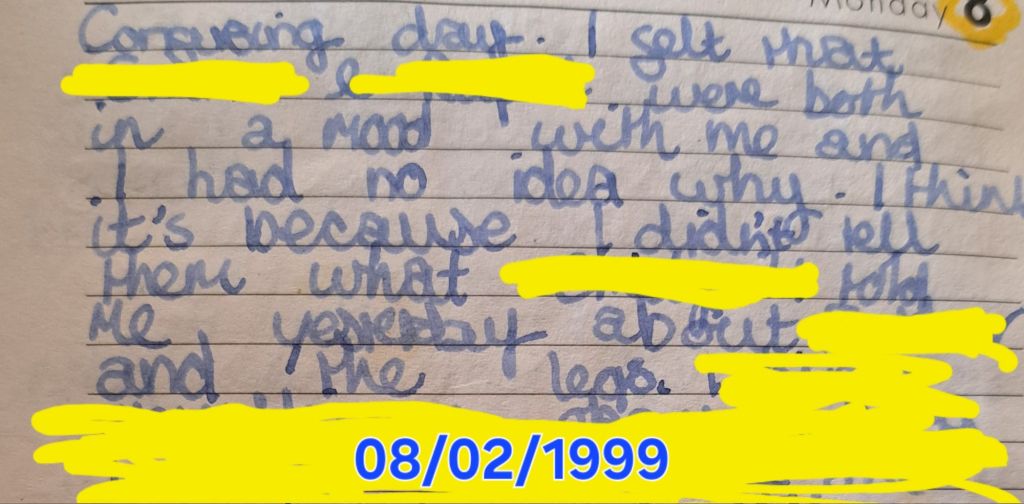 Monday 8
Confusing day. I felt that
& were both
in a mood with me and
I had no idea why. I think
it's because I didn't tell
them what told
me yesterday about
and the legs.
08/02/1999